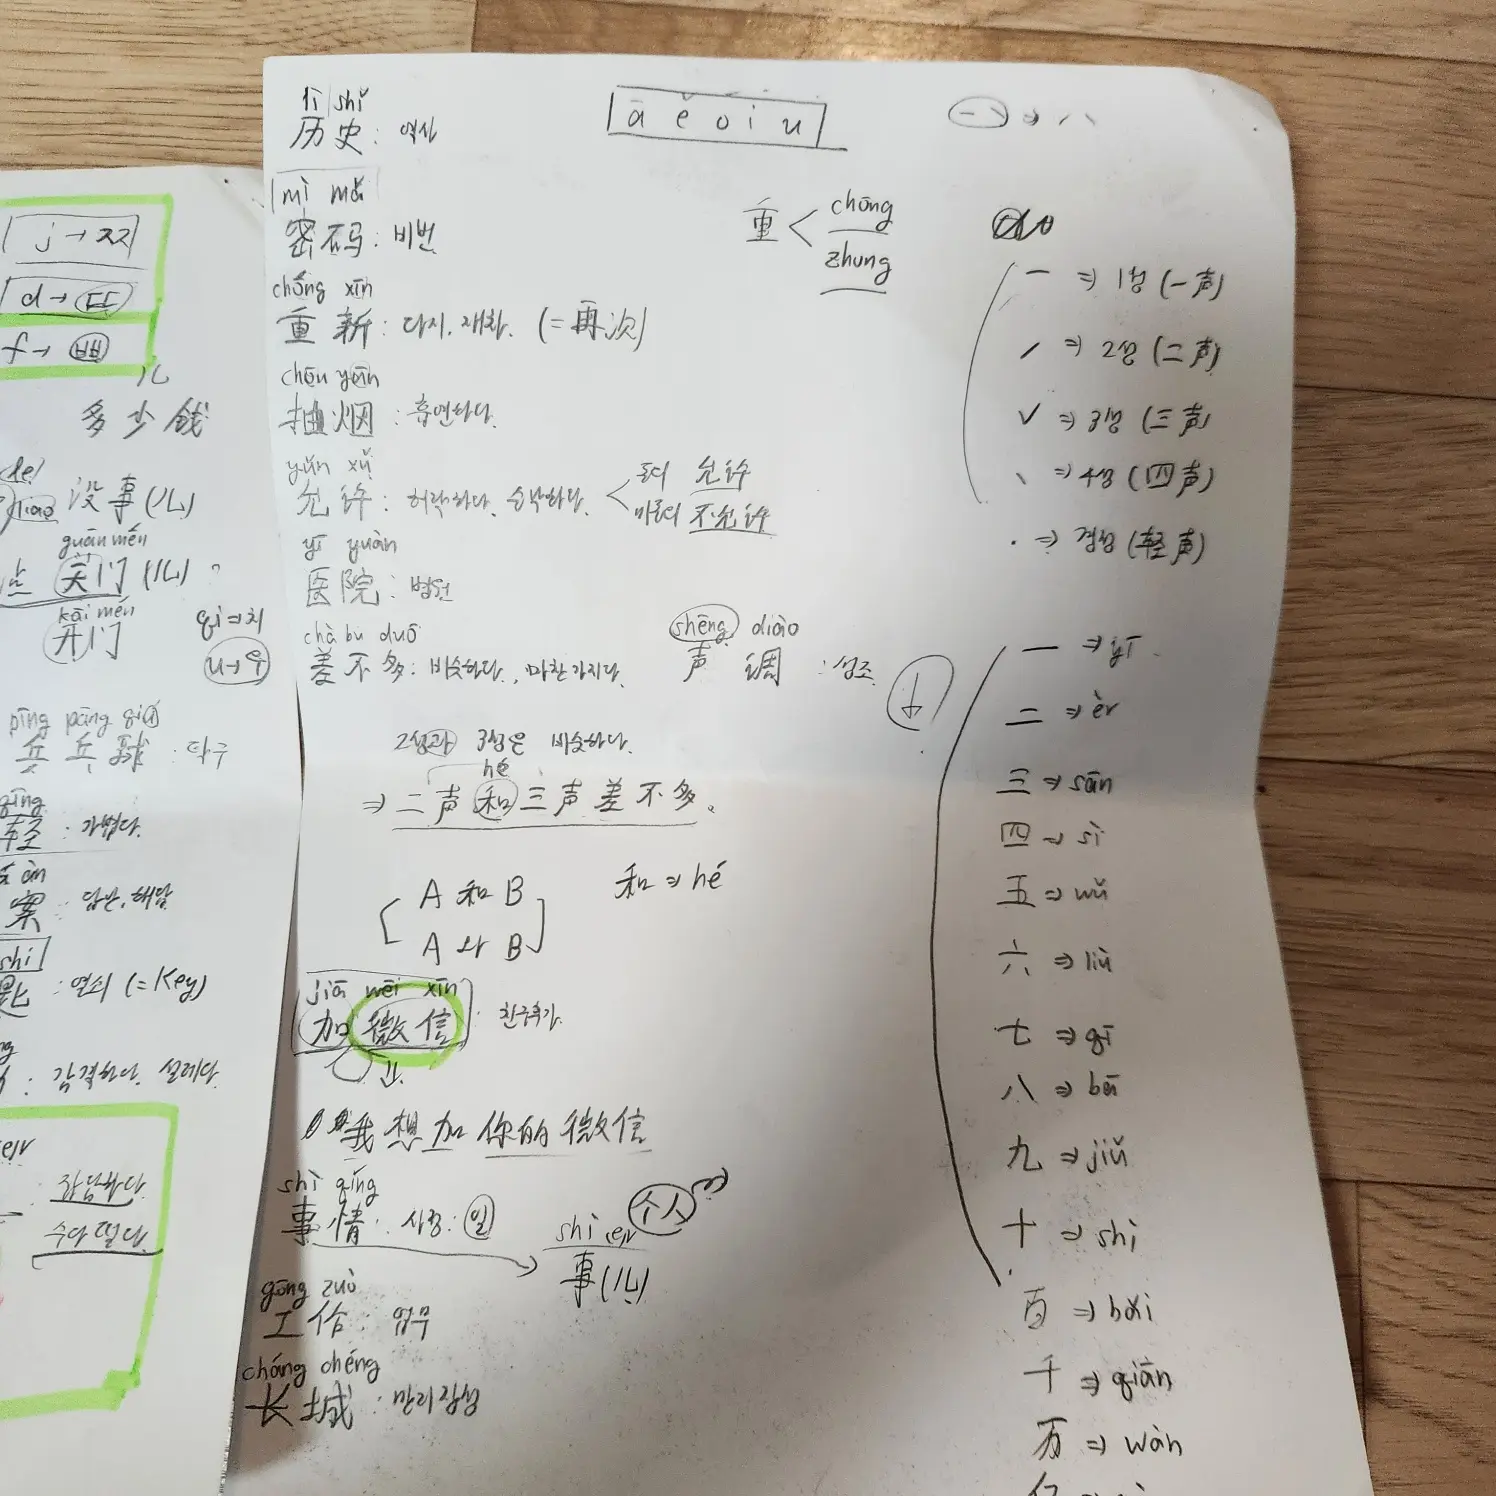 j → ㅈㅈ
d → ㄸ
f → ㅃ
儿
多少钱
没事(儿)
guān mén
关门(儿)
kāi mén
开门
qi ⇒ 치
u → 우
pīng pāng qiú
乒乓球 : 탁구
qīng
轻 : 가볍다.
案 : 답안, 해답
shi
匙 : 열쇠 (=Key)
: 감격하다. 설레다.
잡담하다.
수다 떨다.
lì shǐ
历史 : 역사
mì mǎ
密码 : 비번
chóng xīn
重新 : 다시. 재차. (=再次)
chōu yān
抽烟 : 흡연하다.
yǔn xǔ
允许 : 허락하다. 승낙하다. < 동의 允许
마동의 不允许
yī yuàn
医院 : 병원
chà bu duō
差不多 : 비슷하다., 마찬가지다.
shēng diào
声调 : 성조
2성과 3성은 비슷하다.
hé
⇒ 二声和三声差不多。
A 和 B
A 와 B
和 ⇒ hé
jiā wēi xìn
加微信 : 친구추가.
我想加你的微信
shì qíng
事情 : 사정 : 일
shì er
事(儿)
个人
gōng zuò
工作 : 업무
cháng chéng
长城 : 만리장성
ā ě o i u
一 → 八
重 < chóng
zhung
一 ⇒ 1성 (一声)
ˊ ⇒ 2성 (二声)
ˇ ⇒ 3성 (三声)
ˋ ⇒ 4성 (四声)
· ⇒ 경성 (轻声)
一 ⇒ yī
二 ⇒ èr
三 ⇒ sān
四 → sì
五 ⇒ wǔ
六 ⇒ liù
七 ⇒ qī
八 ⇒ bā
九 ⇒ jiǔ
十 ⇒ shi
百 ⇒ bǎi
千 ⇒ qiān
万 ⇒ wàn
亿